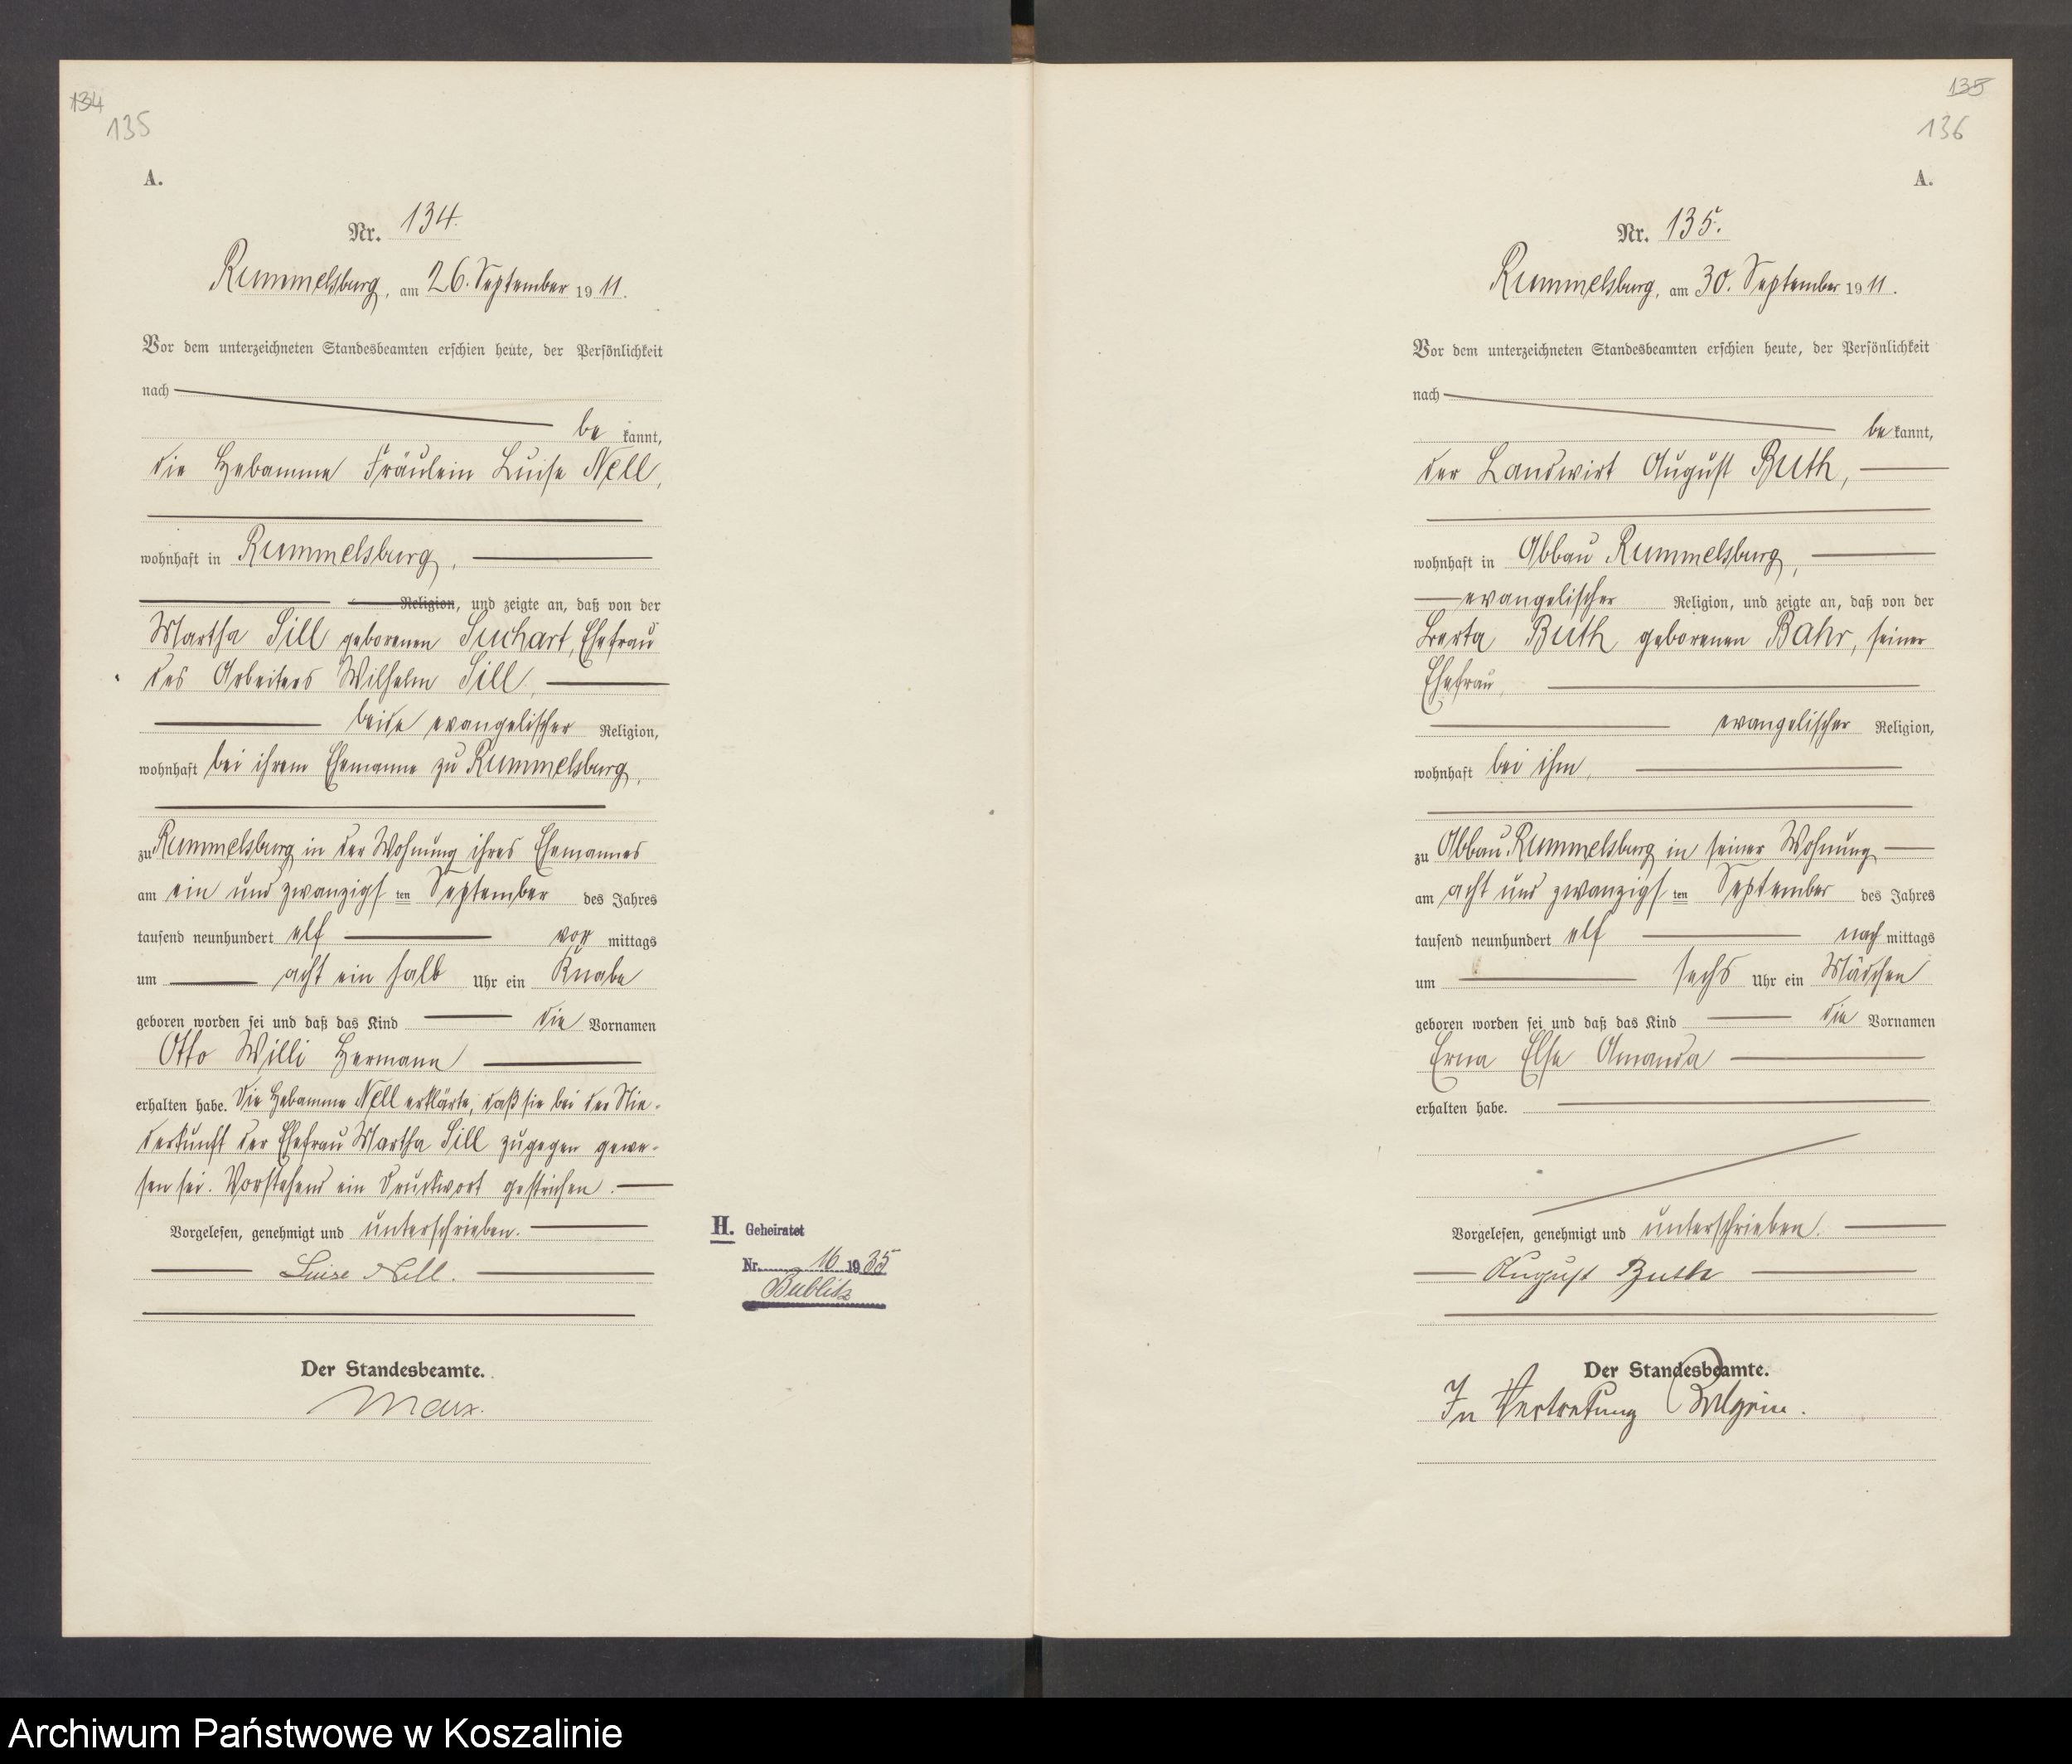 134
135
A.
Nr. 134.
Rummelsburg, am 26. September 1911.
Vor dem unterzeichneten Standesbeamten erschien heute, der Persönlichkeit
nach
bekannt,
die Hebamme Fräulein Luise Nell,
wohnhaft in Rummelsburg,
Religion, und zeigte an, daß von der
Martha Sill geborenen Suchart, Ehefrau
des Arbeiters Wilhelm Sill,
beide evangelischer Religion,
wohnhaft bei ihrem Ehemanne zu Rummelsburg,
zu Rummelsburg in der Wohnung ihres Ehemannes
am ein und zwanzigsten September des Jahres
tausend neunhundert elf vormittags
um acht ein halb Uhr ein Knabe
geboren worden sei und daß das Kind die Vornamen
Otto Willi Hermann
erhalten habe. Die Hebamme Nell erklärte, daß sie bei der Nie-
derkunft der Ehefrau Martha Sill zugegen gewe-
sen sei. Vorstehend ein Druckwort gestrichen.
Vorgelesen, genehmigt und unterschrieben.
Luise Nell.
Der Standesbeamte.
Marx.
H. Geheiratet
Nr. 16 1935
Bublitz
135
136
A.
Nr. 135.
Rummelsburg, am 30. September 1911.
Vor dem unterzeichneten Standesbeamten erschien heute, der Persönlichkeit
nach
bekannt,
der Landwirt August Buth,
wohnhaft in Abbau Rummelsburg,
evangelischer Religion, und zeigte an, daß von der
Berta Buth geborenen Bahr, seiner
Ehefrau,
evangelischer Religion,
wohnhaft bei ihm,
zu Abbau Rummelsburg in seiner Wohnung
am acht und zwanzigsten September des Jahres
tausend neunhundert elf nachmittags
um sechs Uhr ein Mädchen
geboren worden sei und daß das Kind die Vornamen
Erna Else Amanda
erhalten habe.
Vorgelesen, genehmigt und unterschrieben.
August Buth
Der Standesbeamte.
In Vertretung
Archiwum Państwowe w Koszalinie